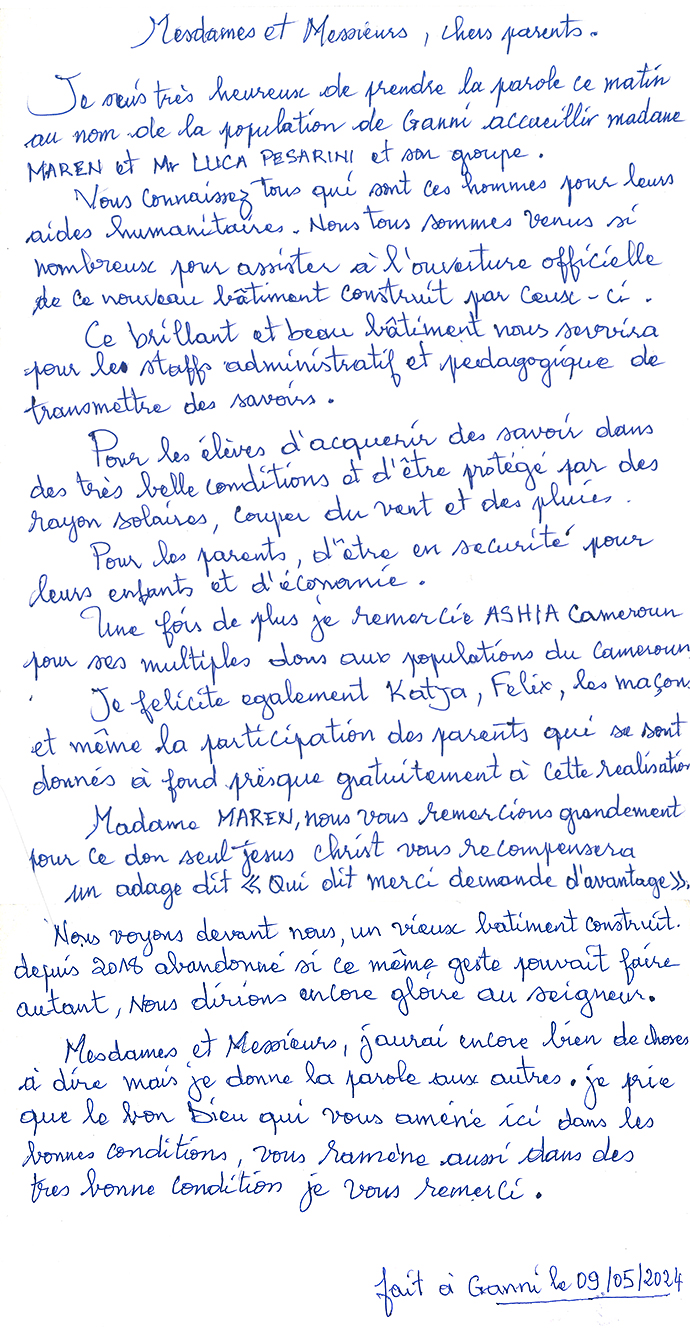 Mesdames et Messieurs, chers parents.
Je suis très heureux de prendre la parole ce matin
au nom de la population de Ganni accueillir madame
MAREN et Mr LUCA PESARINI et son groupe.
Vous connaissez tous qui sont ces hommes pour leurs
aides humanitaires. Nous tous sommes venus si
nombreux pour assister à l'ouverture officielle
de ce nouveau bâtiment construit par ceux-ci.
Ce brillant et beau bâtiment nous servira
pour les staffs administratif et pedagogique de
transmettre des savoirs.
Pour les élèves d'acquerir des savoir dans
des très belle conditions et d'être protégé par des
rayon solaires, couper du vent et des pluies.
Pour les parents, d'être en securité pour
leurs enfants et d'économie.
Une fois de plus je remercie ASHIA Cameroun
pour ses multiples dons aux populations du Cameroun
Je felicite egalement Katja, Felix, les maçons
et même la participation des parents qui se sont
donnés à fond presque gratuitement à cette realisation
Madame MAREN, nous vous remercions grandement
pour ce don seul Jesus Christ vous recompensera
un adage dit « Qui dit merci demande d'avantage ».
Nous voyons devant nous, un vieux batiment construit.
depuis 2018 abandonné si ce même geste pouvait faire
autant, Nous dirions encore gloire au seigneur.
Mesdames et Messieurs, j'aurai encore bien de choses
à dire mais je donne la parole aux autres. je prie
que le bon Dieu qui vous amène ici dans les
bonnes conditions, vous ramène aussi dans des
tres bonne condition je vous remerci.
fait à Ganni le 09/05/2024